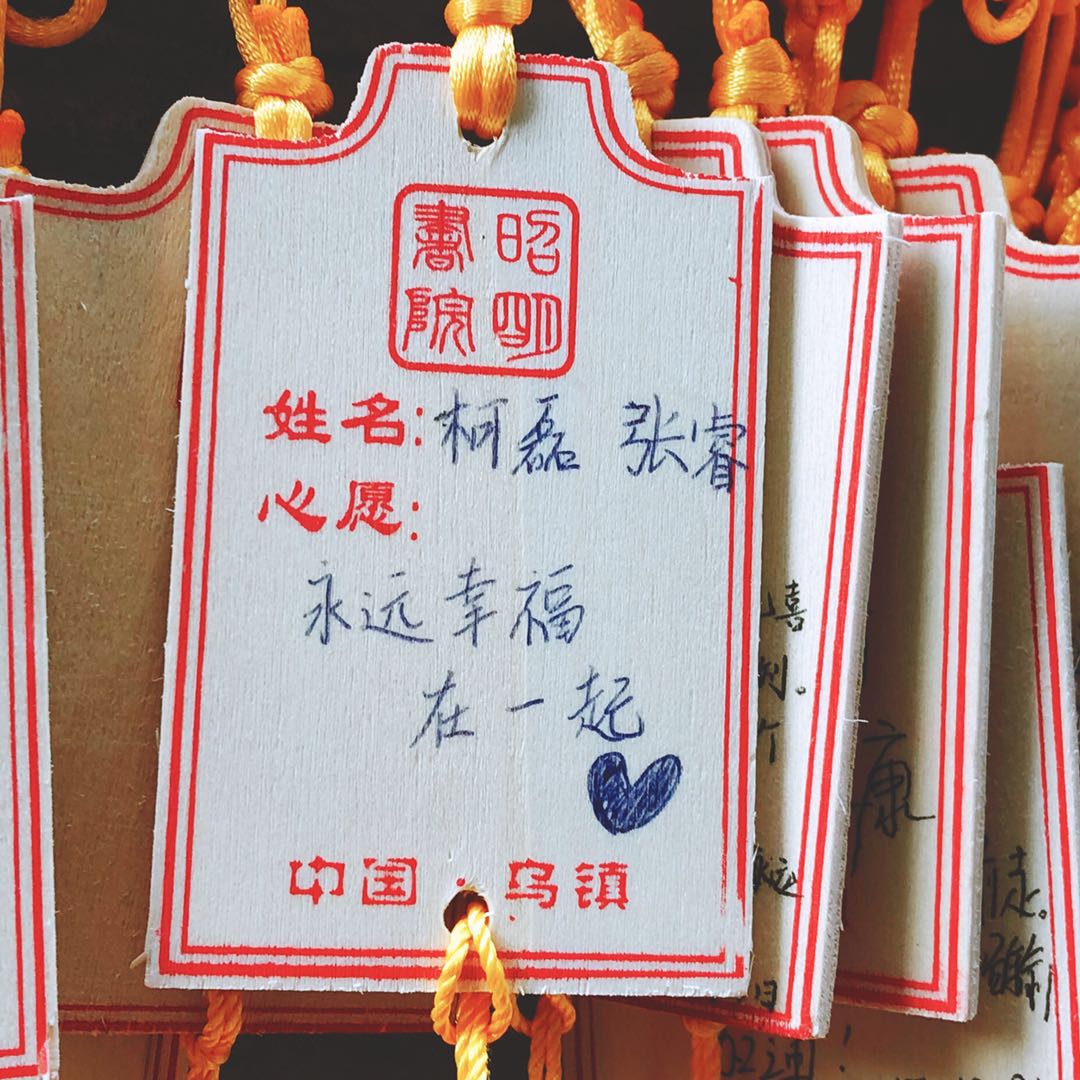 昭明
書院
姓名:柯磊 张睿
心愿:
永远幸福
在一起
中国·乌镇
喜
康